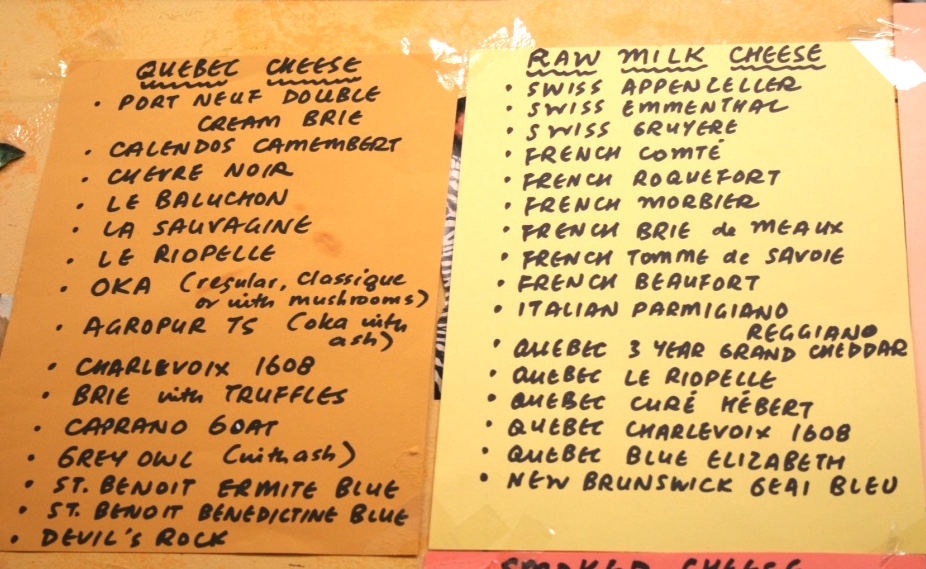 QUEBEC CHEESE
• PORT NEUF DOUBLE
CREAM BRIE
• CALENDOS CAMEMBERT
• CHEVRE NOIR
• LE BALUCHON
• LA SAUVAGINE
• LE RIOPELLE
• OKA (regular, classique
or with mushrooms)
• AGROPUR TS (oka with
ash)
• CHARLEVOIX 1608
• BRIE with TRUFFLES
• CAPRANO GOAT
• GREY OWL (with ash)
• ST. BENOIT ERMITE BLUE
• ST. BENOIT BENEDICTINE BLUE
• DEVIL'S ROCK
RAW MILK CHEESE
• SWISS APPENZELLER
• SWISS EMMENTHAL
• SWISS GRUYERE
• FRENCH COMTÉ
• FRENCH ROQUEFORT
• FRENCH MORBIER
• FRENCH BRIE de MEAUX
• FRENCH TOMME de SAVOIE
• FRENCH BEAUFORT
• ITALIAN PARMIGIANO
REGGIANO
• QUEBEC 3 YEAR GRAND CHEDDAR
• QUEBEC LE RIOPELLE
• QUEBEC CURÉ HÉBERT
• QUEBEC CHARLEVOIX 1608
• QUEBEC BLUE ELIZABETH
• NEW BRUNSWICK GEAI BLEU
CHEESE